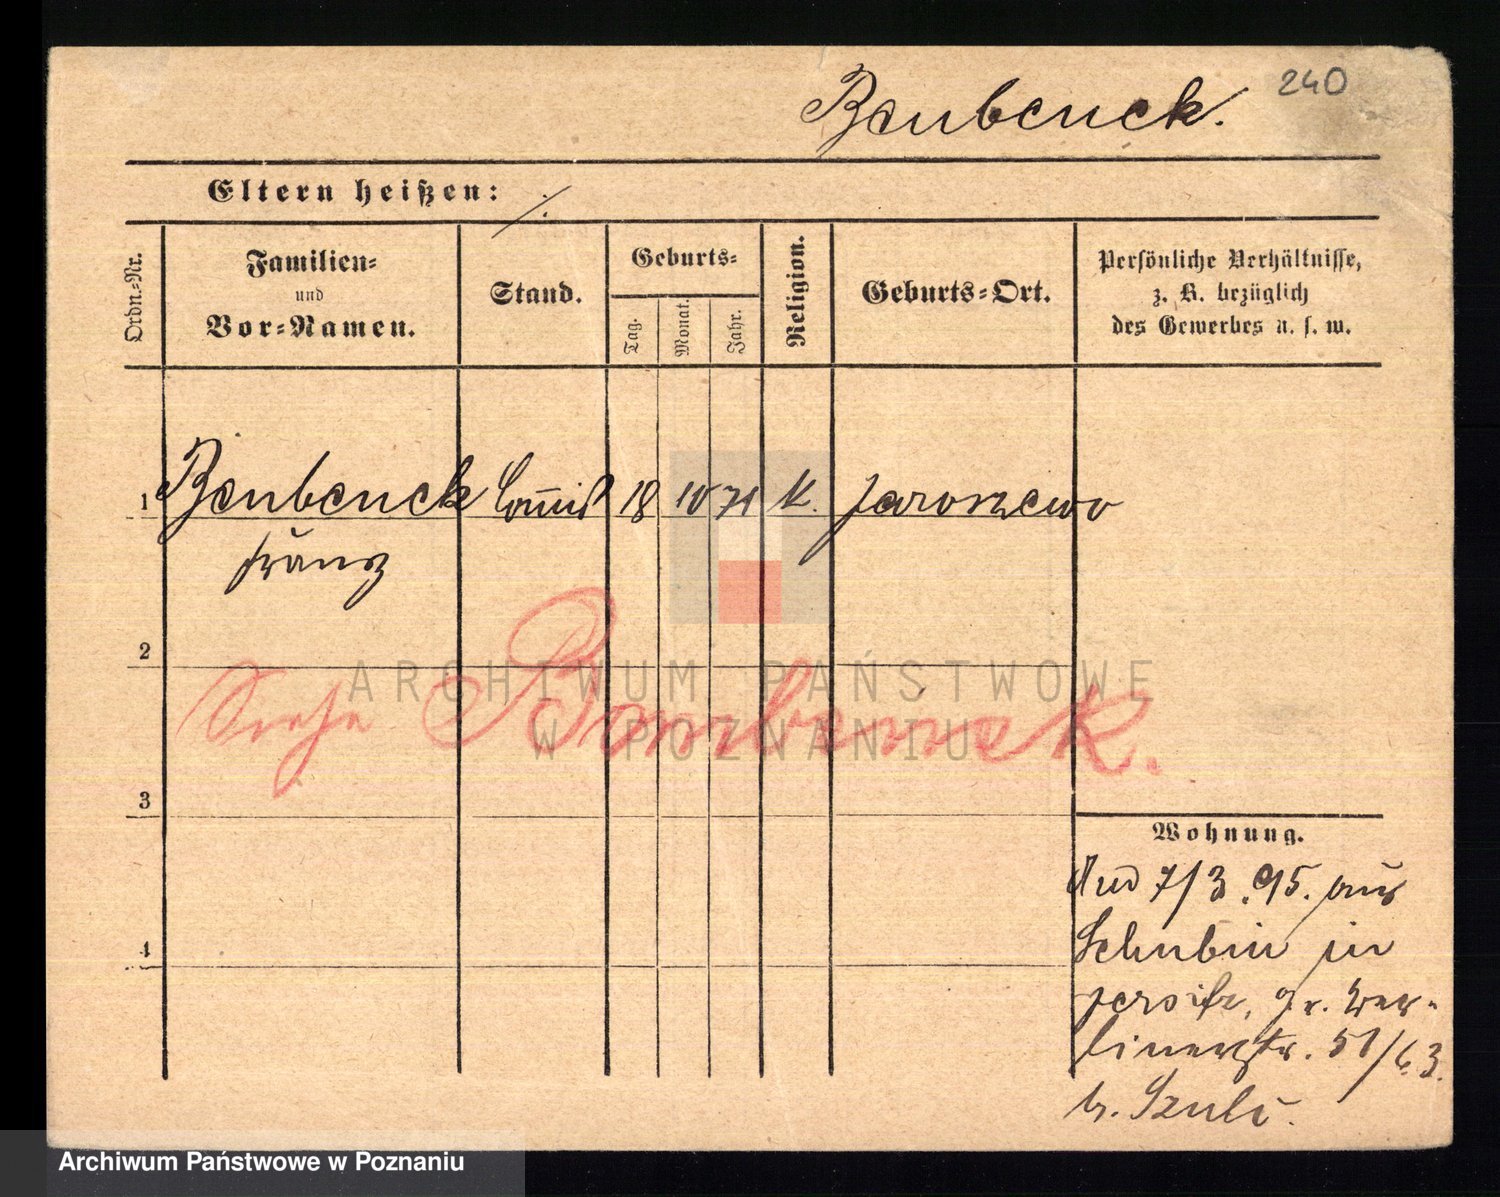 240
Benbenek.
Eltern heißen: ./.
Ordn.-Nr.
Familien- und Vor-Namen.
Stand.
Geburts-
Tag.
Monat.
Jahr.
Religion.
Geburts-Ort.
Persönliche Verhältnisse,
z. B. bezüglich
des Gewerbes u. s. w.
1 Benbenek Commis 18 10 71 K. Jaroszewo
Franz
2
Siehe Bembenek.
3
4
Wohnung.
7/3. 95. aus
Schubin in
Jersitz, gr. Ber-
linerstr. 51/63.
b. Szulc.
ARCHIWUM PAŃSTWOWE
W POZNANIU
Archiwum Państwowe w Poznaniu